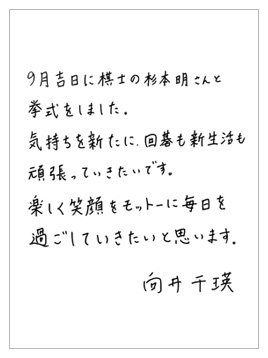 9月吉日に棋士の杉本明さんと
挙式をしました。
気持ちを新たに、囲碁も新生活も
頑張っていきたいです。
楽しく笑顔をモットーに毎日を
過ごしていきたいと思います。
向井千瑛